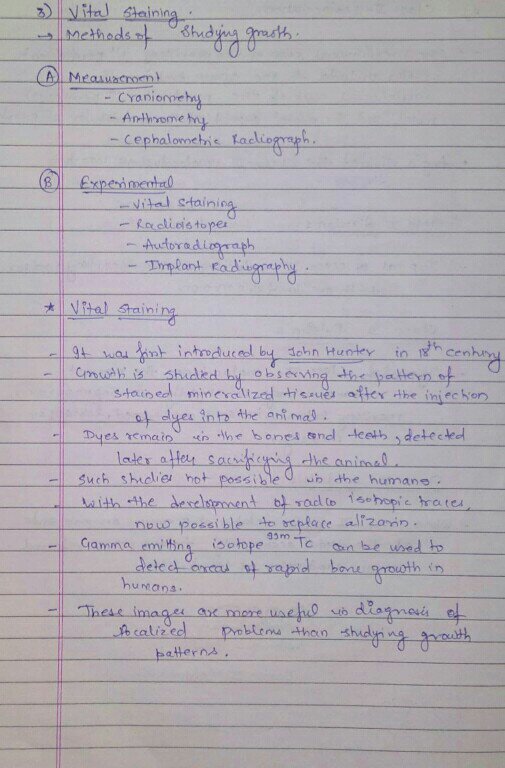 3) Vital Staining.
→ Methods of Studying growth.
(A) Measurement
- Craniometry
- Anthrometry
- Cephalometric Radiograph.
(B) Experimental
- Vital Staining
- Radioistopes
- Autoradiograph
- Implant Radiography.
* Vital Staining
- It was first introduced by John Hunter in 18th century
- Growth is studied by observing the pattern of
stained mineralized tissues after the injection
of dyes into the animal.
- Dyes remain in the bones and teeth, detected
later after sacrificying the animal.
- Such studies not possible in the humans.
- With the development of radio isotopic traces,
now possible to replace alizarin.
- Gamma emitting isotope 99m Tc can be used to
detect areas of rapid bone growth in
humans.
- These images are more useful in diagnosis of
localized problems than studying growth
patterns.